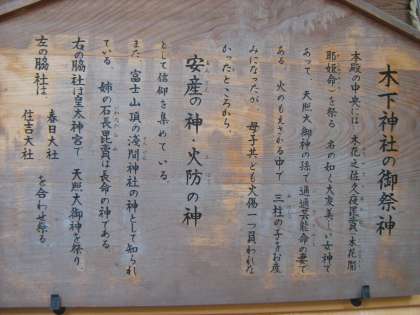 木下神社の御祭神
本殿の中央には、木花之佐久夜毘賣(木花開
耶姫命)を祭る 名の如く大変美しい女神で
あって、天照大御神の孫で迩迩芸能命の妻で
ある 火のもえさかる中で 三柱の子をお産
みになったが 母子共ども火傷一つ負われな
かったところから、
安産の神・火防の神
として信仰を集めている
また、富士山頂の浅間神社の神として知られ
ている 姉の石長毘賣は長命の神である
右の脇社は皇太神宮で 天照大御神を祭り、
左の脇社は 春日大社
住吉大社 を合わせ祭る